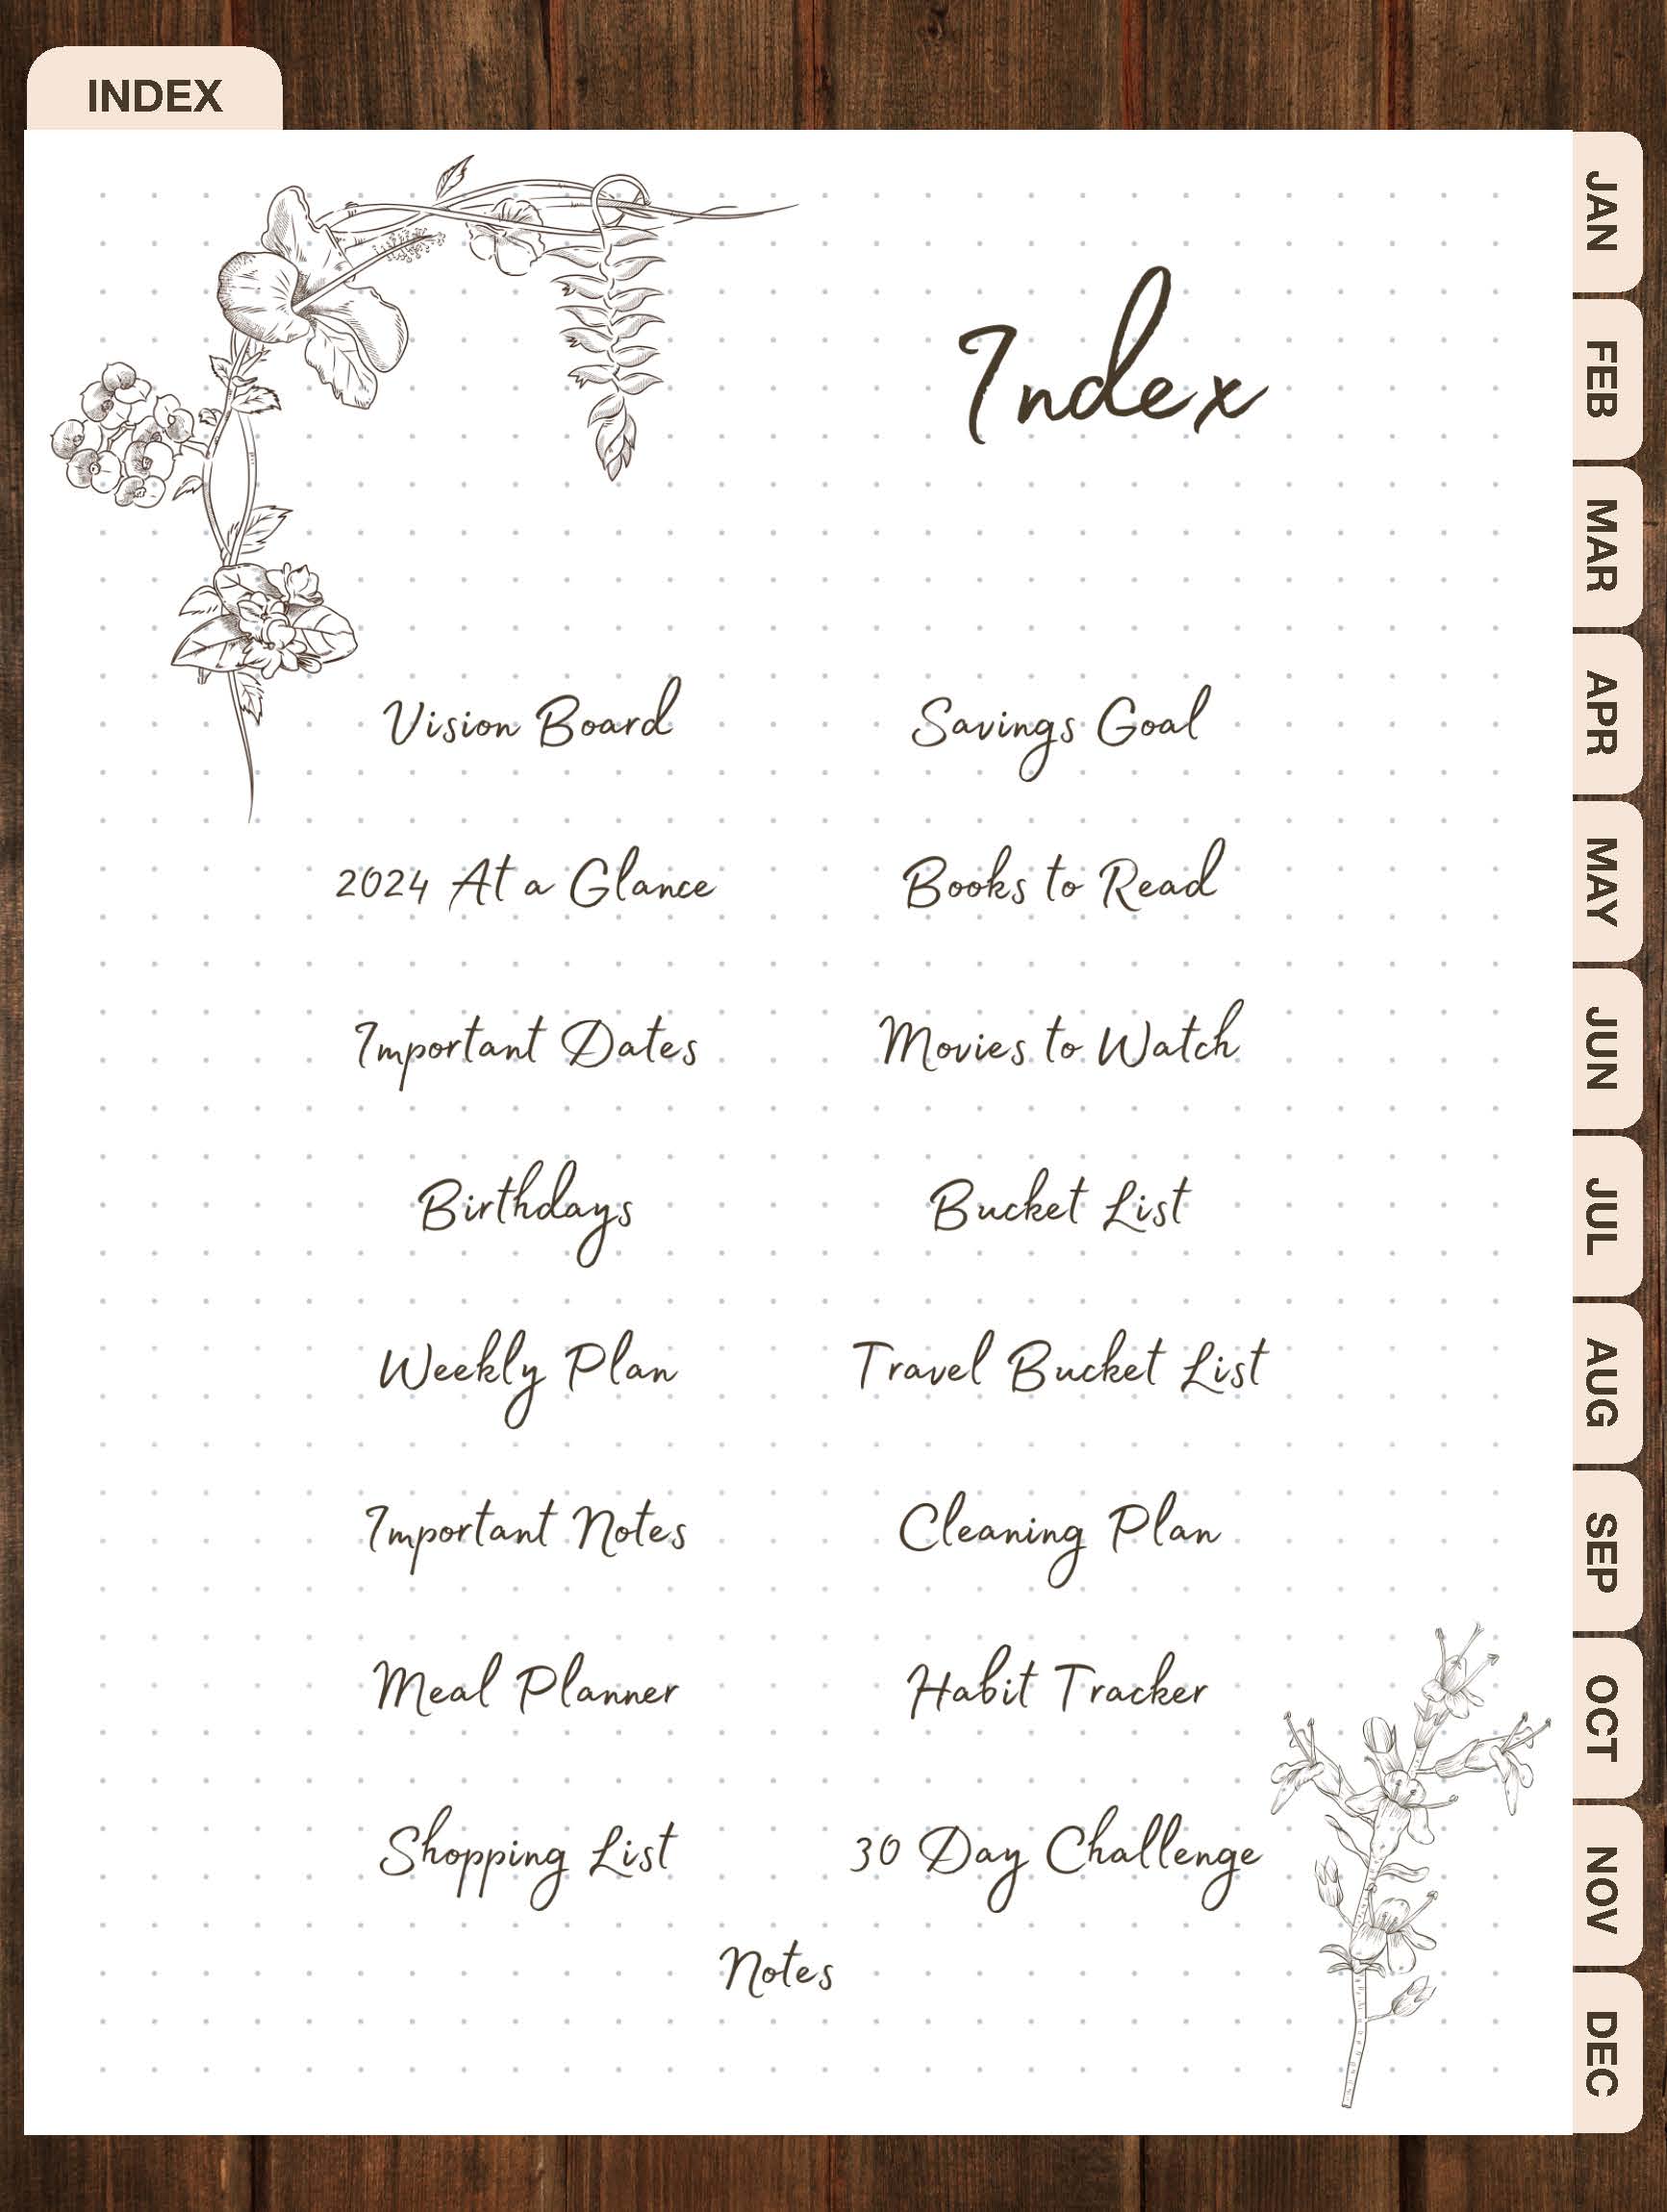 INDEX
Index
Vision Board
Savings Goal
2024 At a Glance
Books to Read
Important Dates
Movies to Watch
Birthdays
Bucket List
Weekly Plan
Travel Bucket List
Important Notes
Cleaning Plan
Meal Planner
Habit Tracker
Shopping List
30 Day Challenge
Notes
JAN
FEB
MAR
APR
MAY
JUN
JUL
AUG
SEP
OCT
NOV
DEC